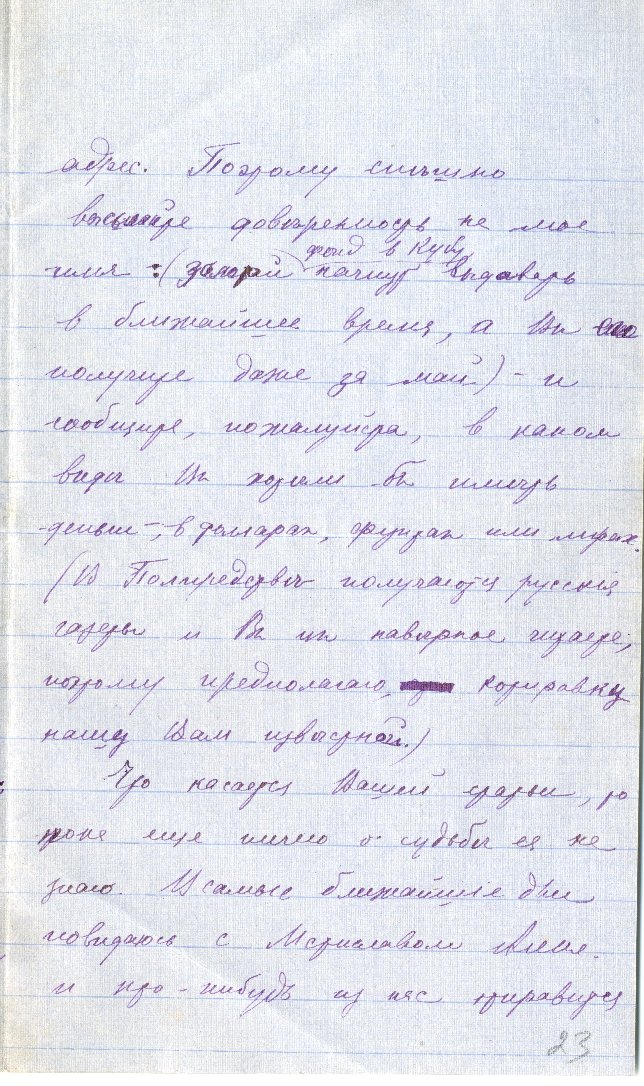 адрес. Поэтому спѣшно
высылайте довѣренность на мое
фонд в Кубу
имя : (зачет начнут выдавать
в ближайшее время, а Вы его
получите даже за май) – и
сообщите, пожалуйста, в каком
видѣ Вы хотѣли бы имѣть
деньги –, в долларах, фунтах или лирах.
(В Полпредствѣ получаются русскія
газеты и Вы их навѣрное читаете,
поэтому предполагаю, котировку
нашу Вам извѣстной.)
Что касается Вашей статьи, то
пока еще ничего о судьбѣ ея не
знаю. В самые ближайшие дни
повидаюсь с Мстиславом
и кто-нибудь из нас отправится
23